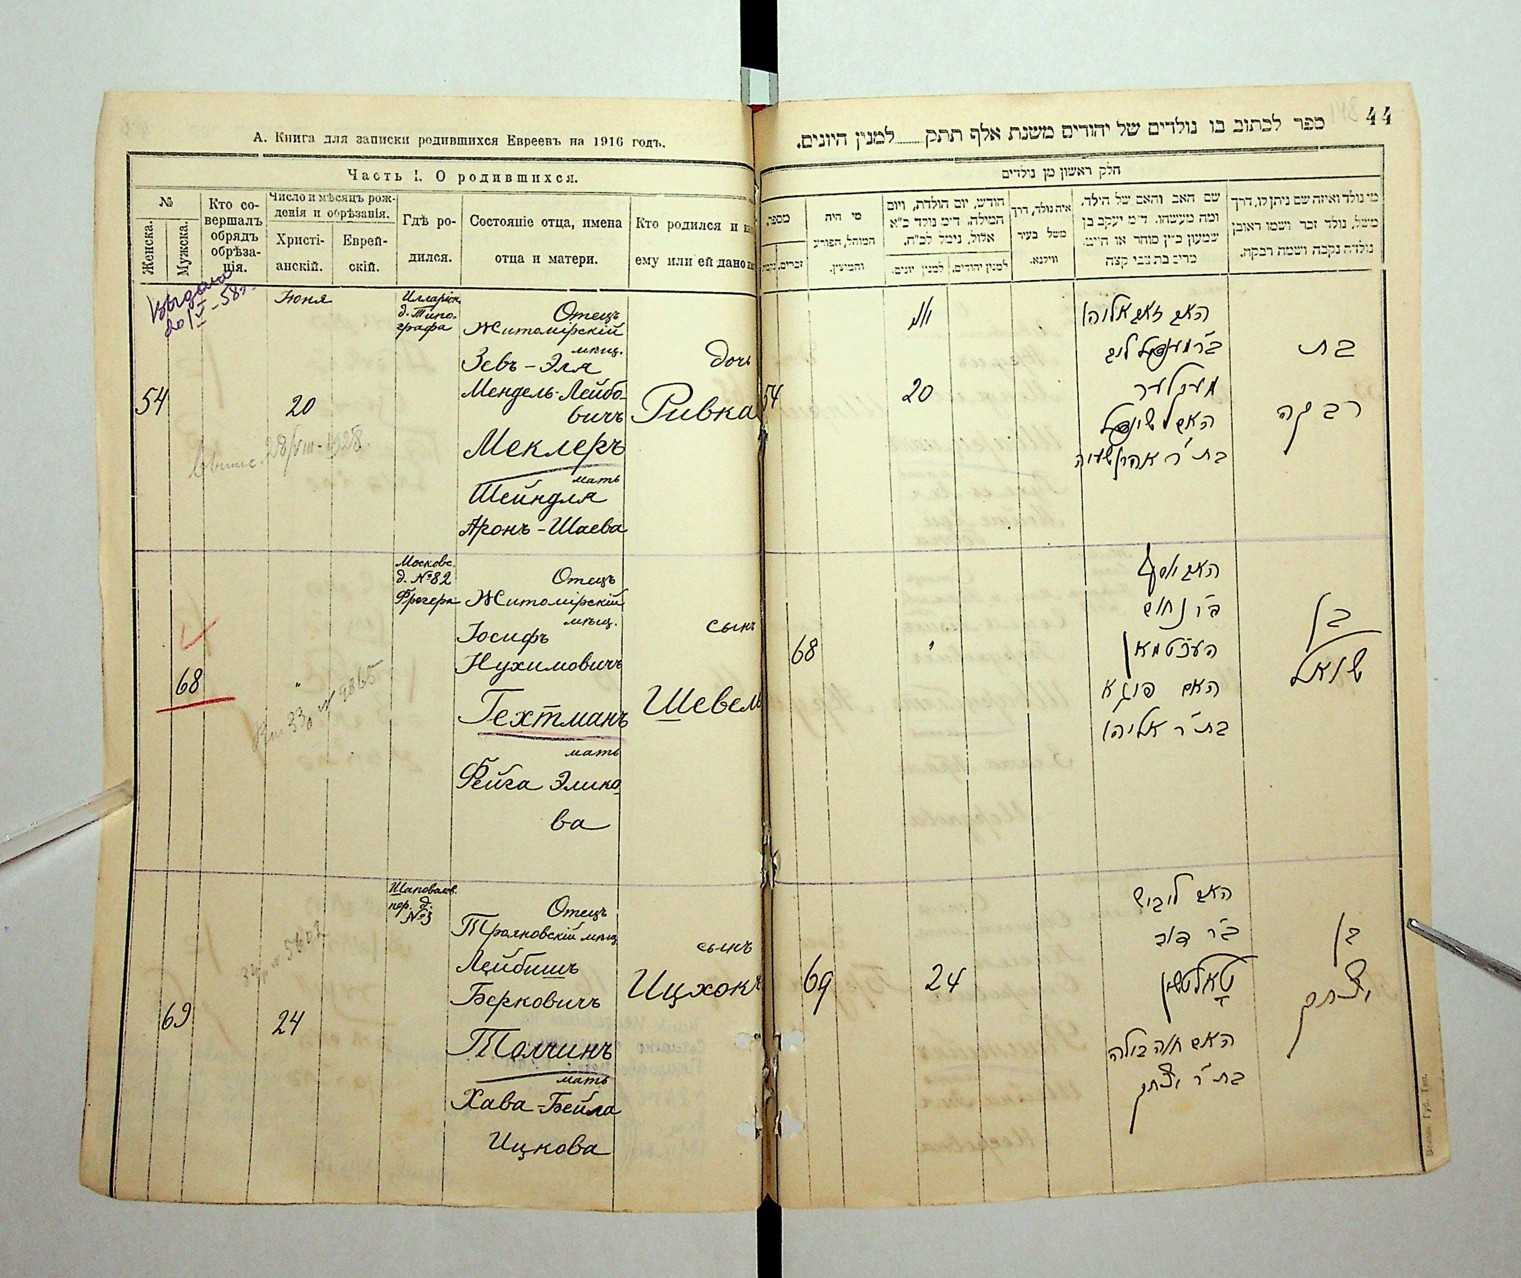 А. Книга для записки родившихся Евреевъ на 1916 годъ.
Часть I. О родившихся.
№
Женска.
Мужска.
Кто со-
вершалъ
обрядъ
обрѣза-
нія.
Число и мѣсяцъ рож-
денія и обрѣзанія.
Христі-
анскій.
Еврей-
скій.
Гдѣ ро-
дился.
Состояніе отца, имена
отца и матери.
Кто родился и
ему или ей дано
Выдана
20/V-58г.
Іюня
54
20
28/VIII-1928.
д. Типо-
графа
Отецъ
Житомірскій
мѣщ.
Зевъ-Эля
Мендель-Лейбо-
вичъ
Меклеръ
мать
Шейндля
Аронъ-Шаева
дочь
Ривка
68
"
Московс.
д. №82
Отецъ
Житомірскій
мѣщ.
Іосифъ
Нухимовичъ
Гехтманъ
мать
Фейга Элико-
ва
сынъ
Шевель
69
24
Шаповалов.
пер. д.
№3
Отецъ
Трояновскій мѣщ.
Лейбишъ
Берковичъ
Толчинъ
мать
Хава-Бейла
Ицкова
сынъ
Ицхокъ
44
ספר לכתוב בו נולדים של יהודים משנת אלף תתק למנין היונים.
חלק ראשון מן נולדים
מספר,
זכרים,
מי היה
המוהל, הפורע
והמוצץ.
חודש, יום הולדת, ויום
המילה, ד״מ נולד כ״א
אלול, נימל לכ״ח,
למנין יונים.
למנין יהודים,
איה נולד, דרך
משל בעיר
ווילנא.
שם האב והאם של הילד,
ומה מעשהו. ד״מ יעקב בן
שמעון כ״ץ סוחר או חייט.
מרים בת צבי קצה
מי נולד ואיזה שם ניתן לו, דרך
משל, נולד זכר ושמו ראובן
נולדה נקבה ושמה רבקה.
54
20
האב זאב אליהו
ב״ר מענדיל ליב
מעקלער
האם שיינדל
בת ר׳ אהרן שעיה
בת
רבקה
68
"
האב יוסף
ב״ר נחום
העכטמאן
האם פיגא
בת ר׳ אליהו
בן
שואל
69
24
האב לייביש
ב״ר דוב
טאלטשין
האם חוה ביילה
בת ר׳ יצחק
בן
יצחק